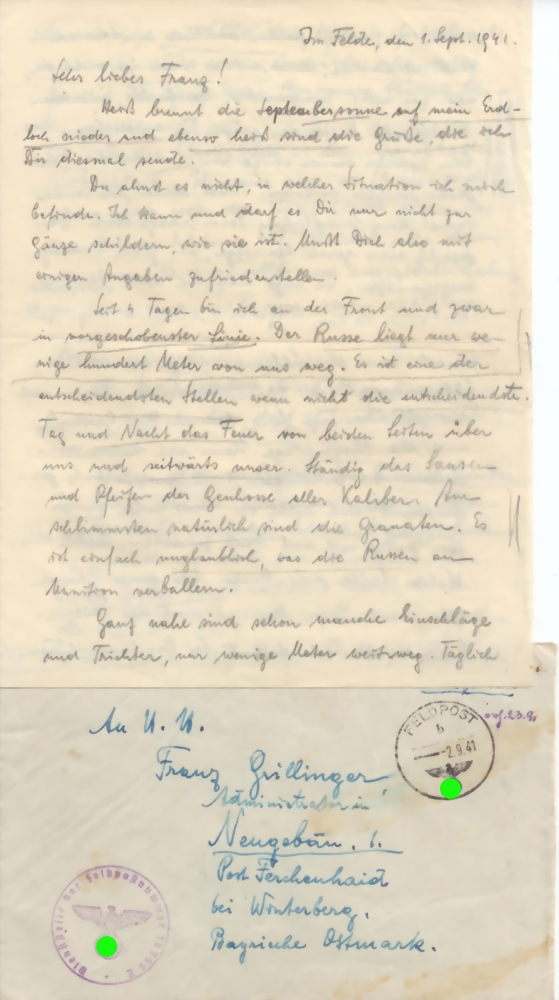 Im Felde, den 1. Sept. 1941.
Sehr lieber Franz!
Heiß brennt die Septembersonne auf mein Erd-
loch nieder und ebenso heiß sind die Grüße, die ich
Dir diesmal sende.
Du ahnst es nicht, in welcher Situation ich mich
befinde. Ich kann und darf es Dir nur nicht zur
Gänze schildern, wie sie ist. Mußt Dich also mit
einigen Angaben zufriedenstellen.
Seit 4 Tagen bin ich an der Front und zwar
in vorgeschobenster Linie. Der Russe liegt nur we-
nige hundert Meter von uns weg. Es ist eine der
entscheidendsten Stellen wenn nicht die entscheidendste.
Tag und Nacht das Feuer von beiden Seiten über
uns und seitwärts unser. Ständig das Sausen
und Pfeifen der Geschosse aller Kaliber. Am
schlimmsten natürlich sind die Granaten. Es
ist einfach unglaublich, was die Russen an
Munition verballern.
Ganz nahe sind schon manche Einschläge
und Trichter, nur wenige Meter weit weg. Täglich
FELDPOST
b
-2.9.41
23.9.
An H. H.
Franz Grillinger
Administrator in
Neugebäu.
Post Ferchenhaid
bei Winterberg.
Bayrische Ostmark.
Dienststelle der Feldpostnummer